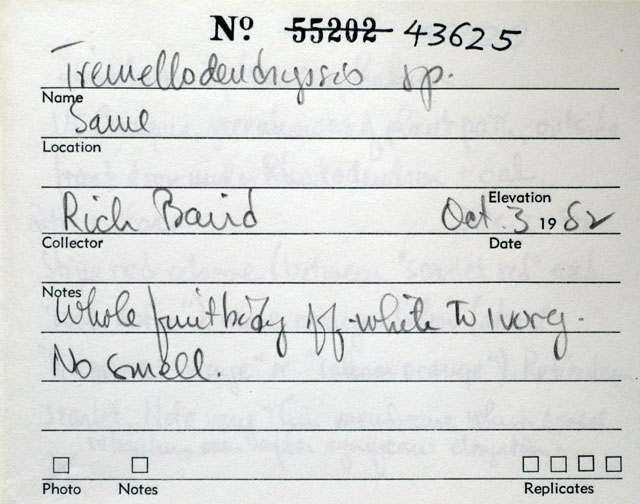 Nº 55202 43625
Tremellodendropsis sp.
Name
Same
Location
Elevation
Rich Baird Oct. 3 1982
Collector Date
Notes
Whole fruitbody off-white to ivory.
No smell.
Photo Notes Replicates